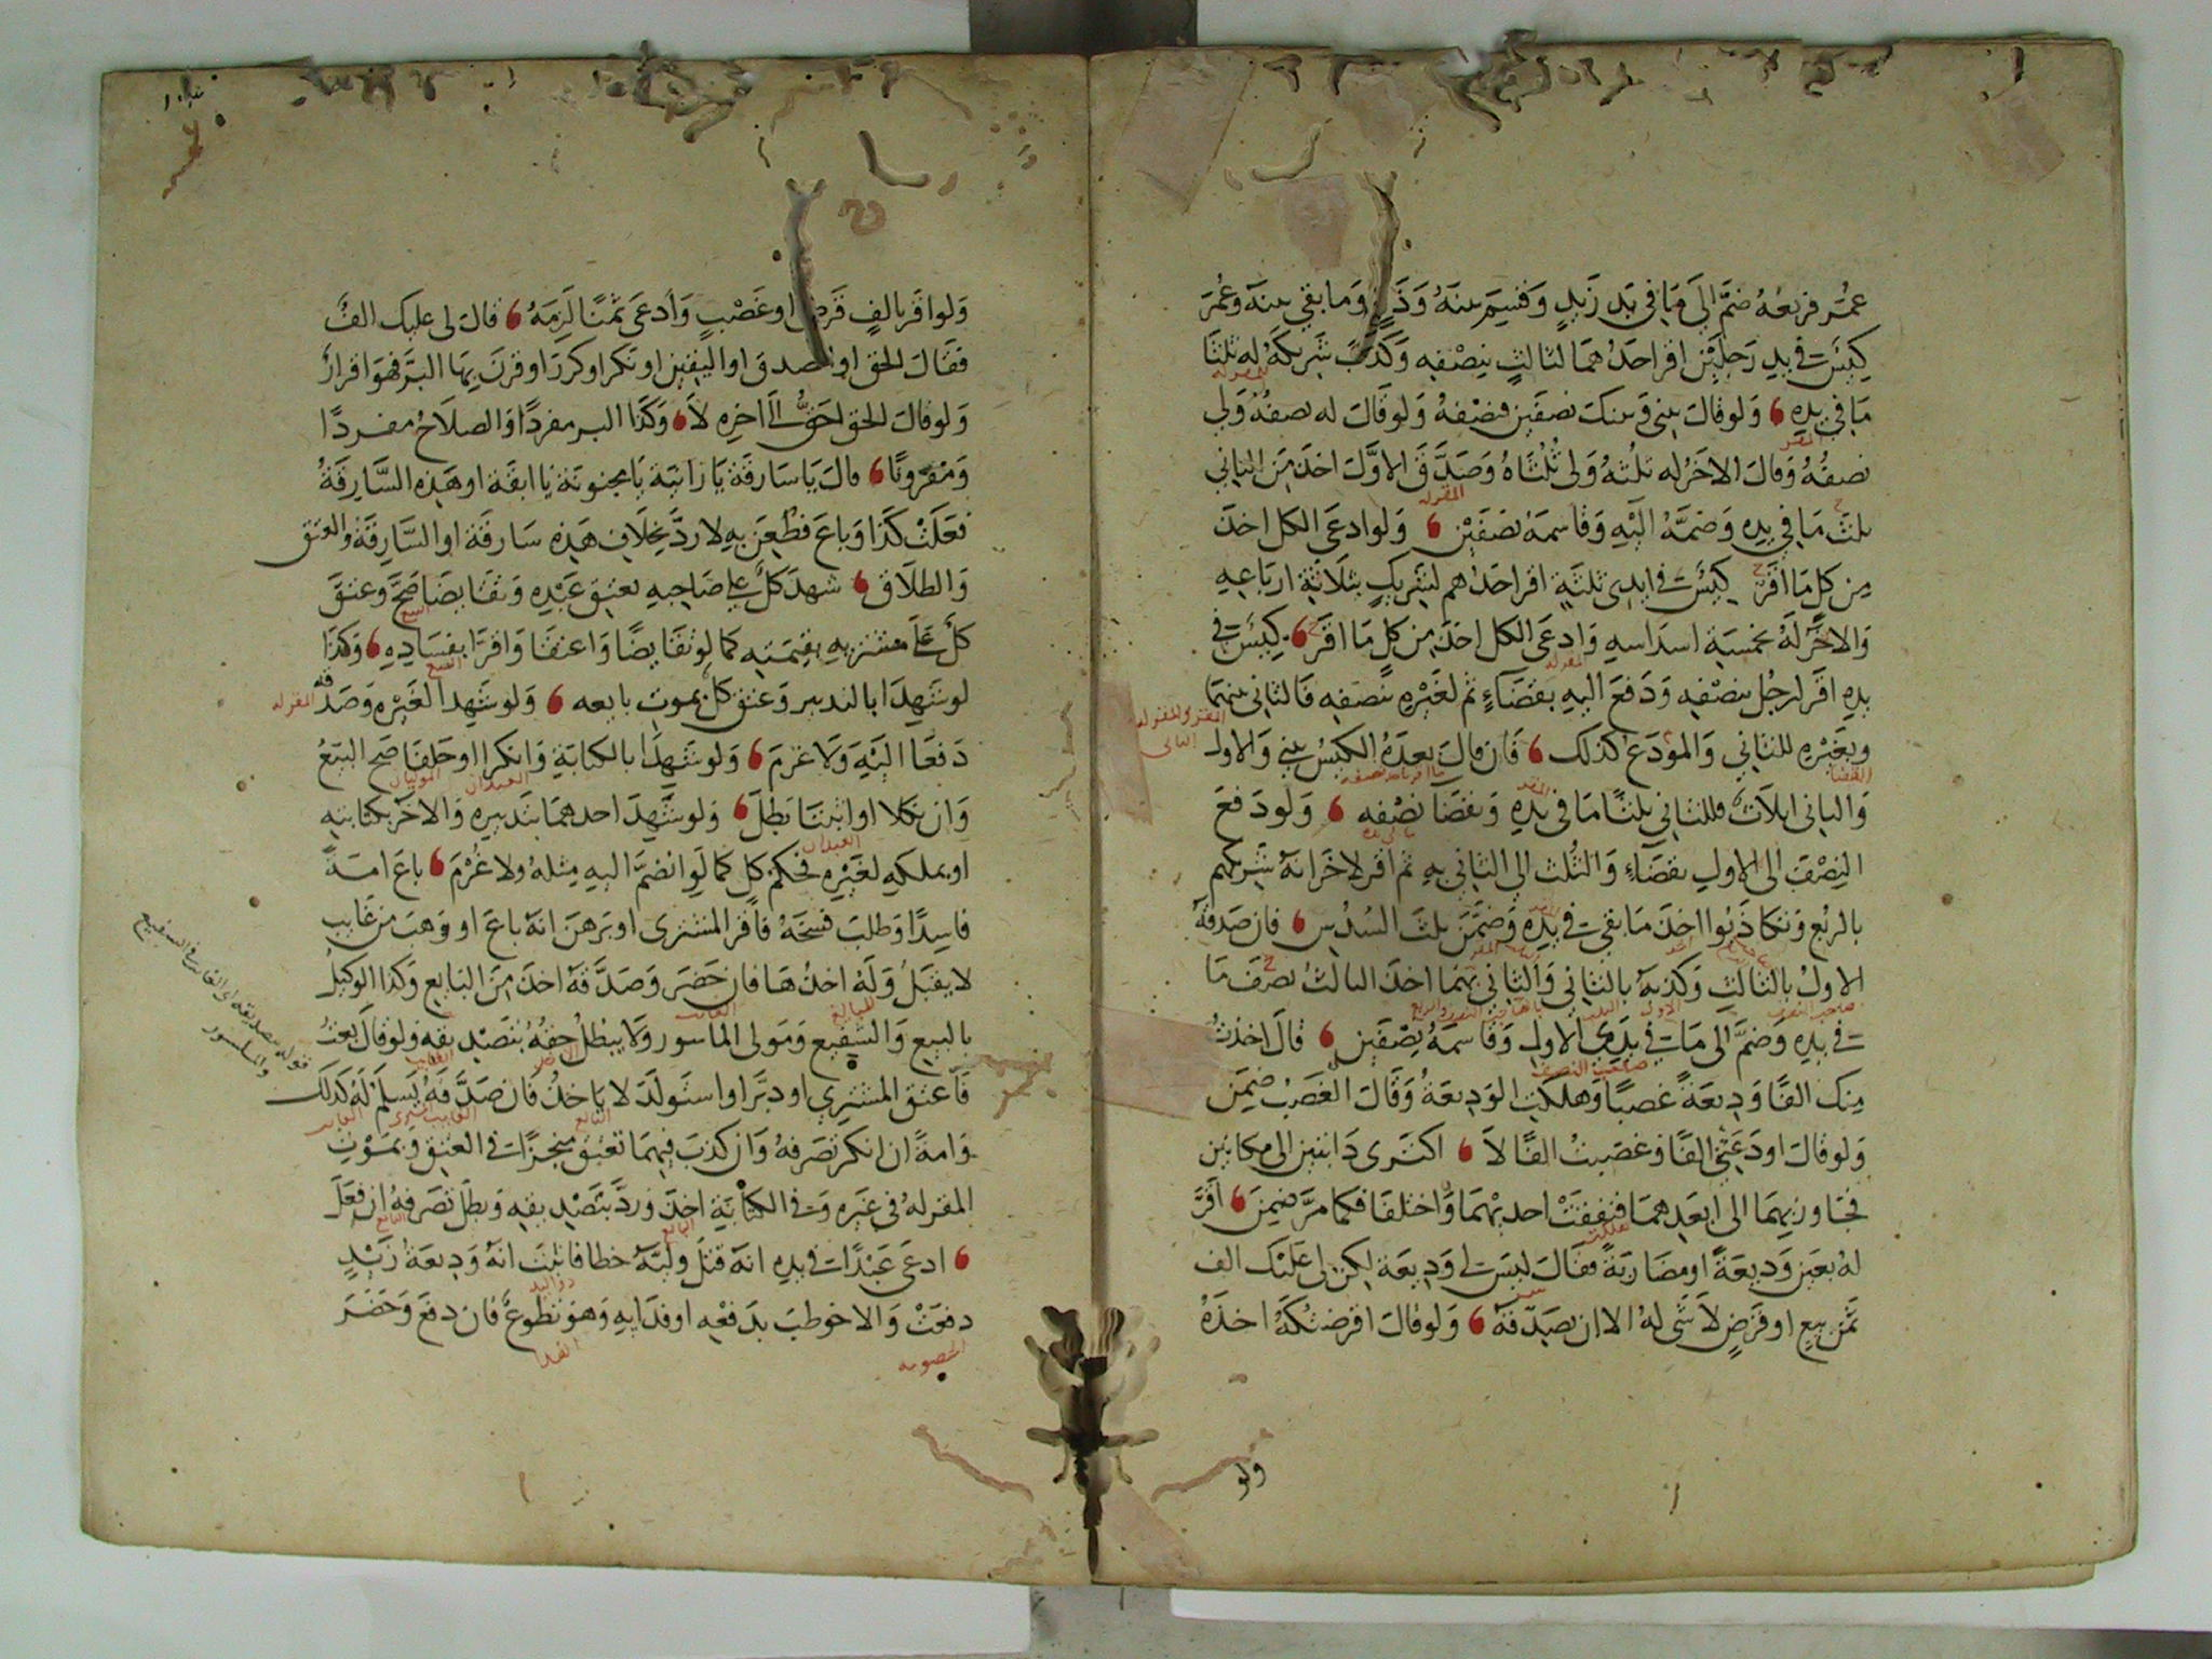 عمر فربعه ضم الى ما في يد زيد وقسم بينه وذي وما بقي بينه وعمر
كيس في يد رجلين اقر احدهما لثالث بنصفه وكذب شريكه له ثلثا
ما في يده ولو قال بيني وبينك نصفين فنصفه ولو قال له نصفه ولي
نصفه وقال الاخر له ثلثه ولي ثلثاه وصدق الاول اخذ من الثاني
ثلث ما في يده وضمه اليه وقاسمه نصفين ولو ادعى الكل اخذ
من كل ما اقر كيس في ايدي ثلثة اقر احدهم لشريك بثلاثة ارباعه
والاخر له بخمسة اسداسه وادعى الكل اخذ من كل ما اقر كيس في
يده اقر لرجل بنصفه ودفع اليه بقضاء ثم لغيره بنصفه فالثاني بينهما
وبغيره للثاني والمودع كذلك فان قال بعده الكيس بيني والاول
والثاني اثلاث فللثاني ثلثا ما في يده وبقضا نصفه ولو دفع
النصف الى الاول بقضاء والثلث الى الثاني به ثم اقر لاخر انه شريكهم
بالربع وتكاذبوا اخذ ما بقي في يده وضمن ثلث السدس فان صدقه
الاول بالثالث وكذبه بالثاني والثاني بهما اخذ الثالث نصف ما
في يده وضم الى ما في يدي الاول وقاسمه نصفين قال اخذت
منك الفا وديعة غصبا وهلكت الوديعة وقال الغصب ضمن
ولو قال اودعتني الفا وغصبت الفا لا اكترى دابتين الى مكانين
فجاوز بهما الى ابعدهما فنفقت احديهما واختلفا فكما مر ضمن اقر
له بعين وديعة او مضاربة فقال ليس لي وديعة لكن لي عليك الف
ثمن بيع او قرض لا شي له الا ان يصدقه ولو قال اقرضتكه اخذه
ولو
ولو اقر بالف قرض او غصب وادعى ثمنا لزمه قال لي عليك الف
فقال الحق او الصدق او اليقين او نكر او كرر او قرن بها البر فهو اقرار
ولو قال الحق حق الى اخره لا وكذا البر مفردا والصلاح مفردا
ومقرونا قال يا سارقة يا زانية يا مجنونة يا ابقة او هذه السارقة
فعلت كذا وباع فطعن به لا رد بخلاف هذه سارقة او السارقة والعتق
والطلاق شهد كل على صاحبه بعتق عبده وتقايضا صح وعتق
كل على مشتريه بقيمته كما لو تقايضا واعتقا واقرا بفساده وكذا
لو شهدا بالتدبير وعتق كل بموت بايعه ولو شهدا لغيره وصدقه
دفعا اليه ولا غرم ولو شهدا بالكتابة وانكرا او حلفا صح البيع
وان نكلا او اثبتا بطل ولو شهد احدهما بتدبيره والاخر بكتابته
او بملكه لغيره فحكم كل كما لو انضم اليه مثله ولا غرم باع امة
فاسدا وطلب فسخه فاقر المشتري او برهن انه باع او وهب من غايب
لا يقبل وله اخذها فان حضر وصدقه اخذ من البايع وكذا الوكيل
بالبيع والشفيع ومولى الماسور ولا يبطل حقه بتصديقه ولو قال بعت
فاعتق المشتري او دبر او استولد لا ياخذ فان صدقه يسلم له كذلك
وامة ان انكر تصرفه وان كذب فيهما تعتق منجزات في العتق وبموت
المقر له في غيره وفي الكتابة اخذ ورد بتصديقه وبطل تصرفه ان فعل
ادعى عبدا في يده انه قتل وليه خطا فاثبت انه وديعة زيد
دفعت والا خوطب بدفعه او فدايه وهو تطوع فان دفع وحضر